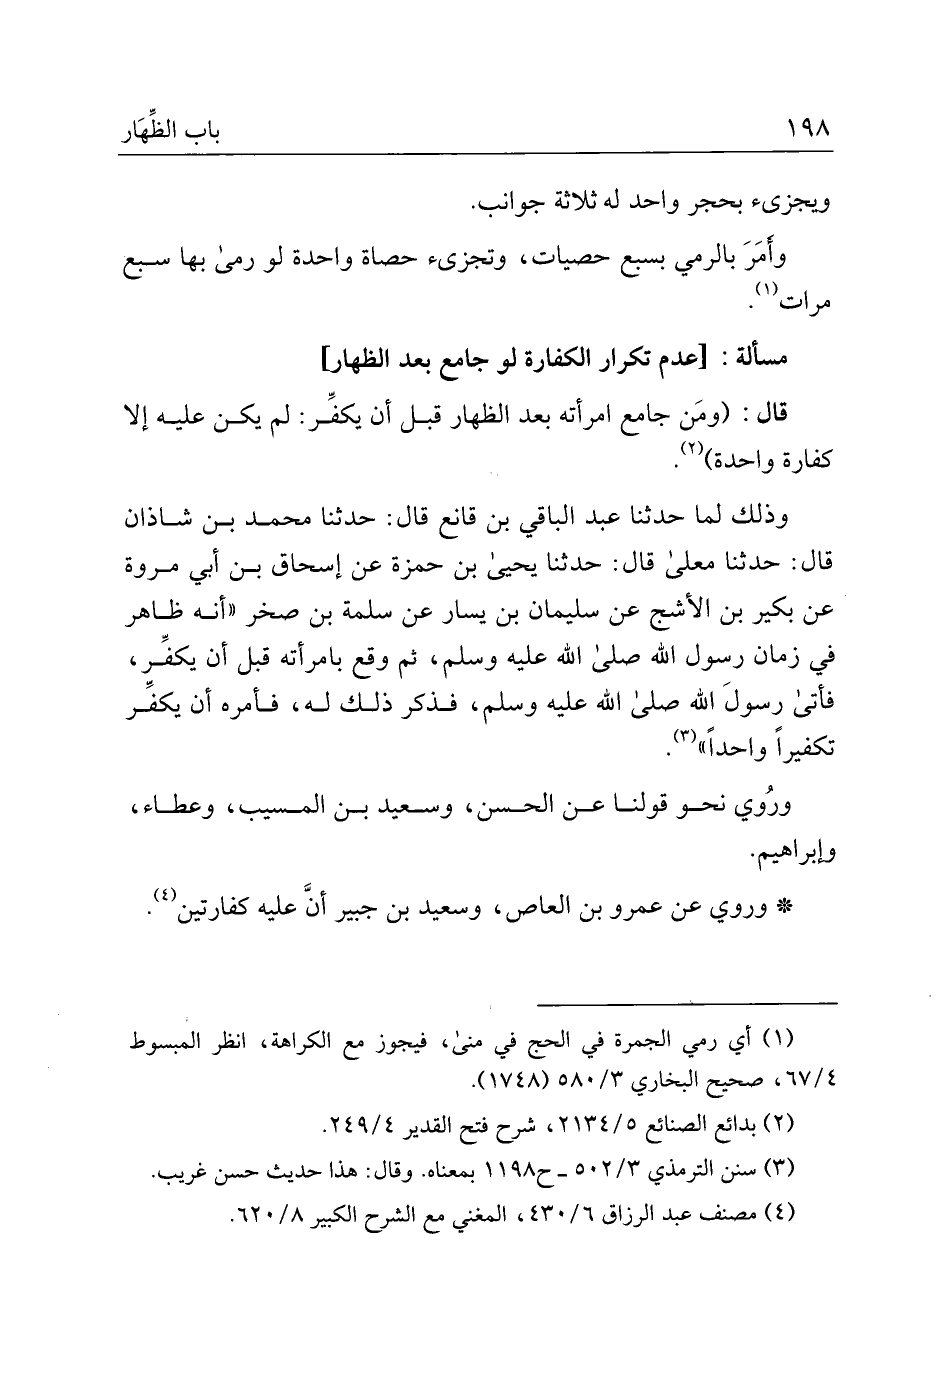 ١٩٨ باب الظِّهَار
ويجزىء بحجر واحد له ثلاثة جوانب.
وأَمَرَ بالرمي بسبع حصيات، وتجزىء حصاة واحدة لو رمىٰ بها سبع
مرات(١).
مسألة : [عدم تكرار الكفارة لو جامع بعد الظهار]
قال : (ومَن جامع امرأته بعد الظهار قبل أن يكفِّر: لم يكن عليه إلا
كفارة واحدة)(٢).
وذلك لما حدثنا عبد الباقي بن قانع قال: حدثنا محمد بن شاذان
قال: حدثنا معلىٰ قال: حدثنا يحيىٰ بن حمزة عن إسحاق بن أبي مروة
عن بكير بن الأشج عن سليمان بن يسار عن سلمة بن صخر «أنه ظاهر
في زمان رسول الله صلىٰ الله عليه وسلم، ثم وقع بامرأته قبل أن يكفِّر،
فأتىٰ رسولَ الله صلىٰ الله عليه وسلم، فذكر ذلك له، فأمره أن يكفِّر
تكفيراً واحداً»(٣).
ورُوي نحو قولنا عن الحسن، وسعيد بن المسيب، وعطاء،
وإبراهيم.
* وروي عن عمرو بن العاص، وسعيد بن جبير أنَّ عليه كفارتين(٤).
(١) أي رمي الجمرة في الحج في منىٰ، فيجوز مع الكراهة، انظر المبسوط
٦٧/٤، صحيح البخاري ٥٨٠/٣ (١٧٤٨).
(٢) بدائع الصنائع ٢١٣٤/٥، شرح فتح القدير ٢٤٩/٤.
(٣) سنن الترمذي ٥٠٢/٣ ـ ح١١٩٨ بمعناه. وقال: هذا حديث حسن غريب.
(٤) مصنف عبد الرزاق ٤٣٠/٦، المغني مع الشرح الكبير ٦٢٠/٨.